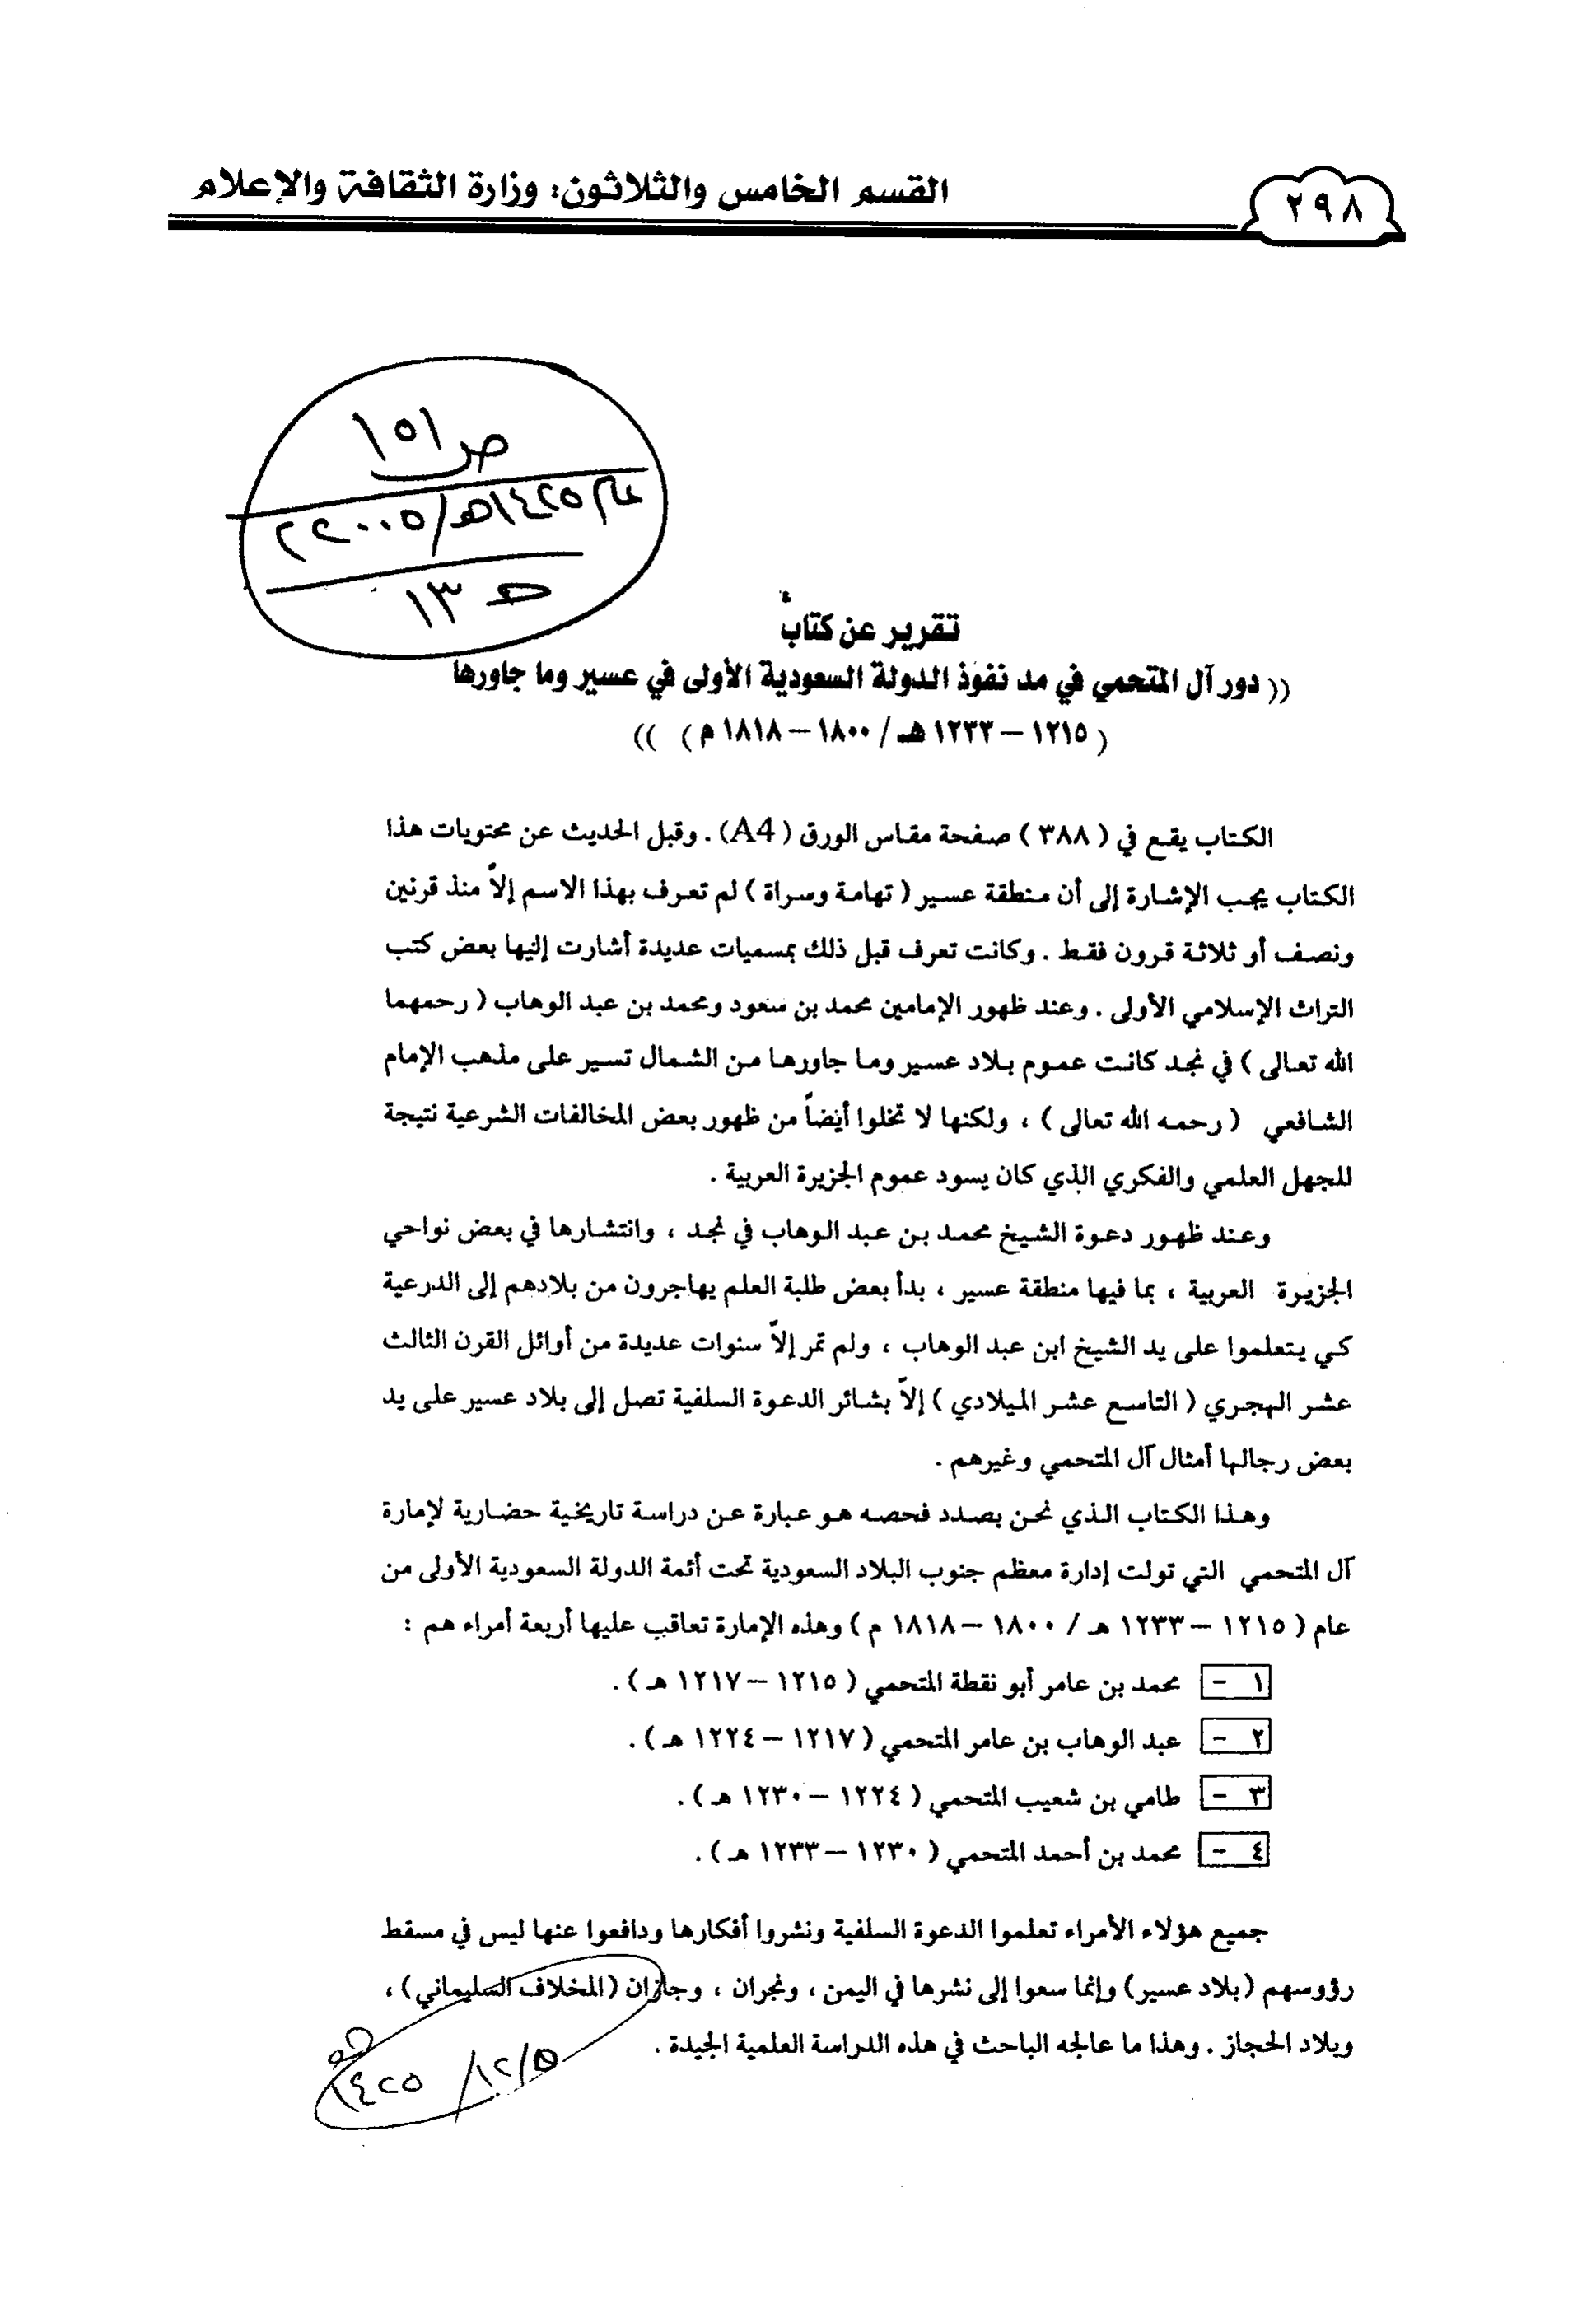 ٢٩٨
القسم الخامس والثلاثون: وزارة الثقافة والإعلام
ص ١٥١
عام ١٤٢٥هـ/٢٠٠٥م
١٣
تقرير عن كتاب
(( دور آل المتحمي في مد نفوذ الدولة السعودية الأولى في عسير وما جاورها
( ١٢١٥ – ١٢٣٣ هـ / ١٨٠٠ – ١٨١٨ م ) ))
الكتاب يقع في ( ٣٨٨ ) صفحة مقاس الورق ( A4) . وقبل الحديث عن محتويات هذا
الكتاب يجب الإشارة إلى أن منطقة عسير ( تهامة وسراة ) لم تعرف بهذا الاسم إلاّ منذ قرنين
ونصف أو ثلاثة قرون فقط . وكانت تعرف قبل ذلك بمسميات عديدة أشارت إليها بعض كتب
التراث الإسلامي الأولى . وعند ظهور الإمامين محمد بن سعود ومحمد بن عبد الوهاب ( رحمهما
الله تعالى ) في نجد كانت عموم بلاد عسير وما جاورها من الشمال تسير على مذهب الإمام
الشافعي ( رحمه الله تعالى ) ، ولكنها لا تخلوا أيضاً من ظهور بعض المخالفات الشرعية نتيجة
للجهل العلمي والفكري الذي كان يسود عموم الجزيرة العربية .
وعند ظهور دعوة الشيخ محمد بن عبد الوهاب في نجد ، وانتشارها في بعض نواحي
الجزيرة العربية ، بما فيها منطقة عسير ، بدأ بعض طلبة العلم يهاجرون من بلادهم إلى الدرعية
كي يتعلموا على يد الشيخ ابن عبد الوهاب ، ولم تمر إلاّ سنوات عديدة من أوائل القرن الثالث
عشر الهجري ( التاسع عشر الميلادي ) إلاّ بشائر الدعوة السلفية تصل إلى بلاد عسير على يد
بعض رجالها أمثال آل المتحمي وغيرهم .
وهذا الكتاب الذي نحن بصدد فحصه هو عبارة عن دراسة تاريخية حضارية لإمارة
آل المتحمي التي تولت إدارة معظم جنوب البلاد السعودية تحت أئمة الدولة السعودية الأولى من
عام ( ١٢١٥ – ١٢٣٣ هـ / ١٨٠٠ – ١٨١٨ م ) وهذه الإمارة تعاقب عليها أربعة أمراء هم :
١ - محمد بن عامر أبو نقطة المتحمي ( ١٢١٥ – ١٢١٧ هـ ) .
٢ - عبد الوهاب بن عامر المتحمي ( ١٢١٧ – ١٢٢٤ هـ ) .
٣ - طامي بن شعيب المتحمي ( ١٢٢٤ – ١٢٣٠ هـ ) .
٤ - محمد بن أحمد المتحمي ( ١٢٣٠ – ١٢٣٣ هـ ) .
جميع هؤلاء الأمراء تعلموا الدعوة السلفية ونشروا أفكارها ودافعوا عنها ليس في مسقط
رؤوسهم (بلاد عسير) وإنما سعوا إلى نشرها في اليمن ، ونجران ، وجازان (المخلاف السليماني) ،
وبلاد الحجاز . وهذا ما عالجه الباحث في هذه الدراسة العلمية الجيدة .
٥/١٢/ ١٤٢٥هـ